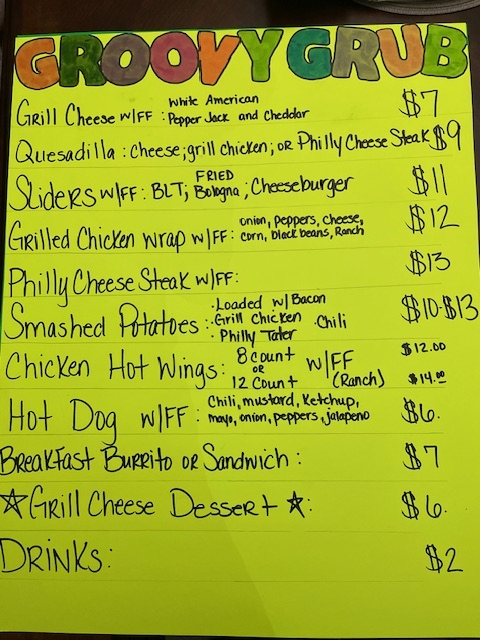 GROOVY GRUB
Grill Cheese W/FF : White American
Pepper Jack and Cheddar $7
Quesadilla : Cheese; grill chicken; OR Philly Cheese Steak $9
Sliders W/FF : BLT; FRIED Bologna ; Cheeseburger $11
Grilled Chicken Wrap W/FF : onion, peppers, cheese,
corn, black beans, Ranch $12
Philly Cheese Steak W/FF: $13
Smashed Potatoes : • Loaded w/ Bacon
• Grill Chicken • Chili
• Philly Tater $10-$13
Chicken Hot Wings: 8 count $12.00
OR W/FF
12 Count (Ranch) $14.00
Hot Dog W/FF : Chili, mustard, Ketchup,
mayo, onion, peppers, jalapeno $6.
Breakfast Burrito OR Sandwich : $7
☆ Grill Cheese Dessert ☆: $6.
DRINKS: $2